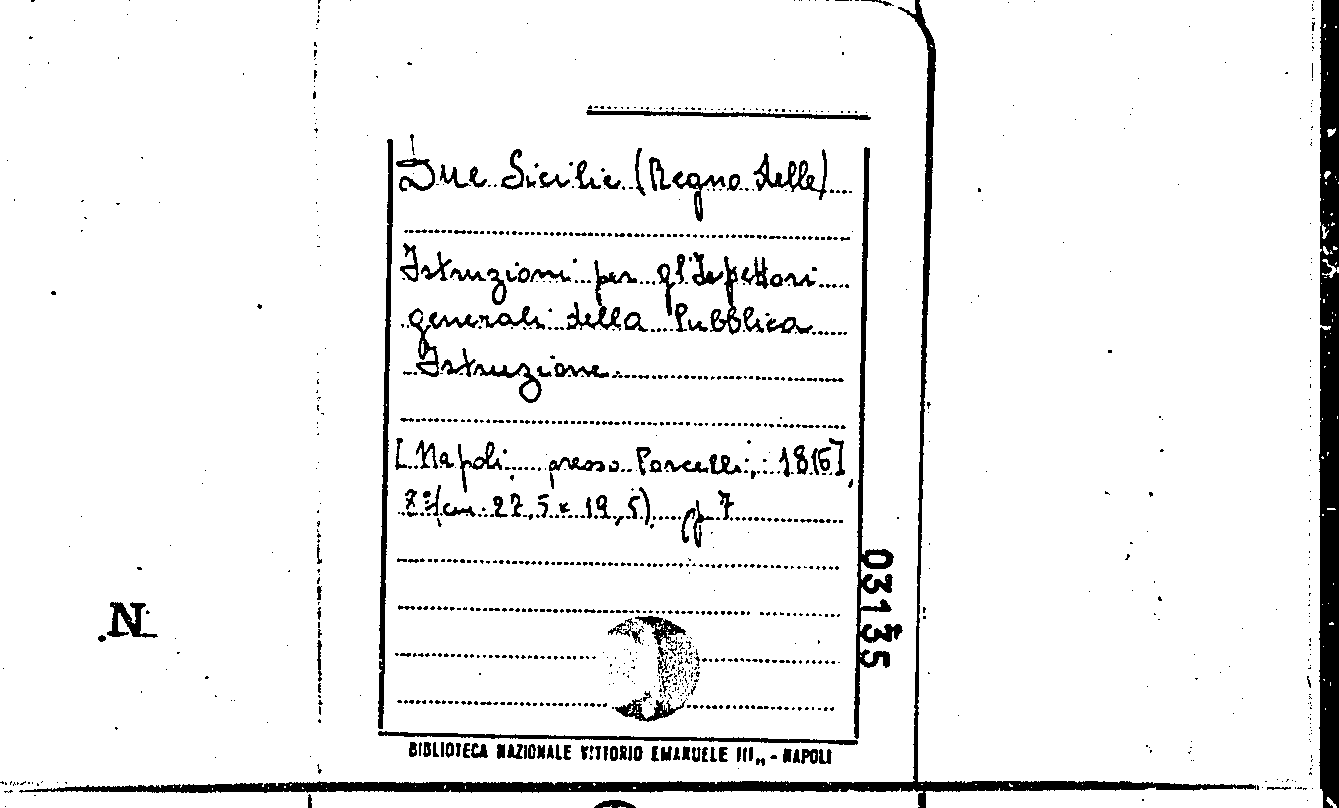 Due Sicilie (Regno delle)
Istruzioni per gl'Ispettori
generali della Pubblica
Istruzione.
[Napoli, presso Porcelli, 1816],
8º (cm. 27,5 x 19,5). pp 7
03135
N
BIBLIOTECA NAZIONALE VITTORIO EMANUELE III,, - NAPOLI